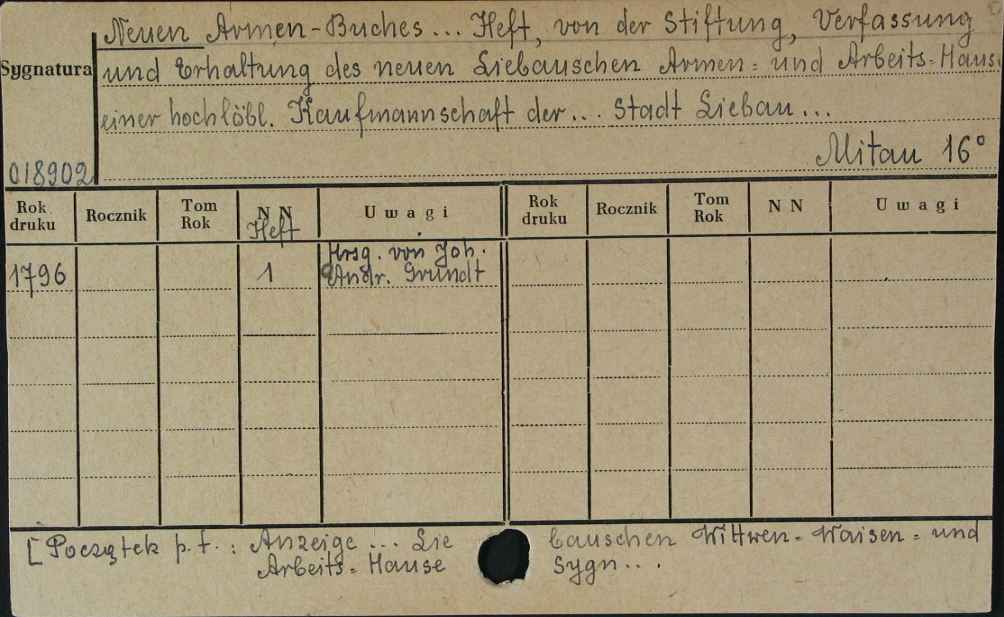 Neuen Armen-Buches ... Heft, von der Stiftung, Verfassung
Sygnatura und Erhaltung des neuen Liebauschen Armen= und Arbeits=Haus.
einer hochlöbl. Kaufmannschaft der... Stadt Liebau...
Mitau 16°
018902
Rok druku Rocznik Tom Rok NN Heft Uwagi Rok druku Rocznik Tom Rok NN Uwagi
1796 1 Hrsg. von Joh. Andr. Grundt
[Początek p.t.: Anzeige ... Lie bauschen Wittwen- Waisen= und
Arbeits=Hause Sygn...